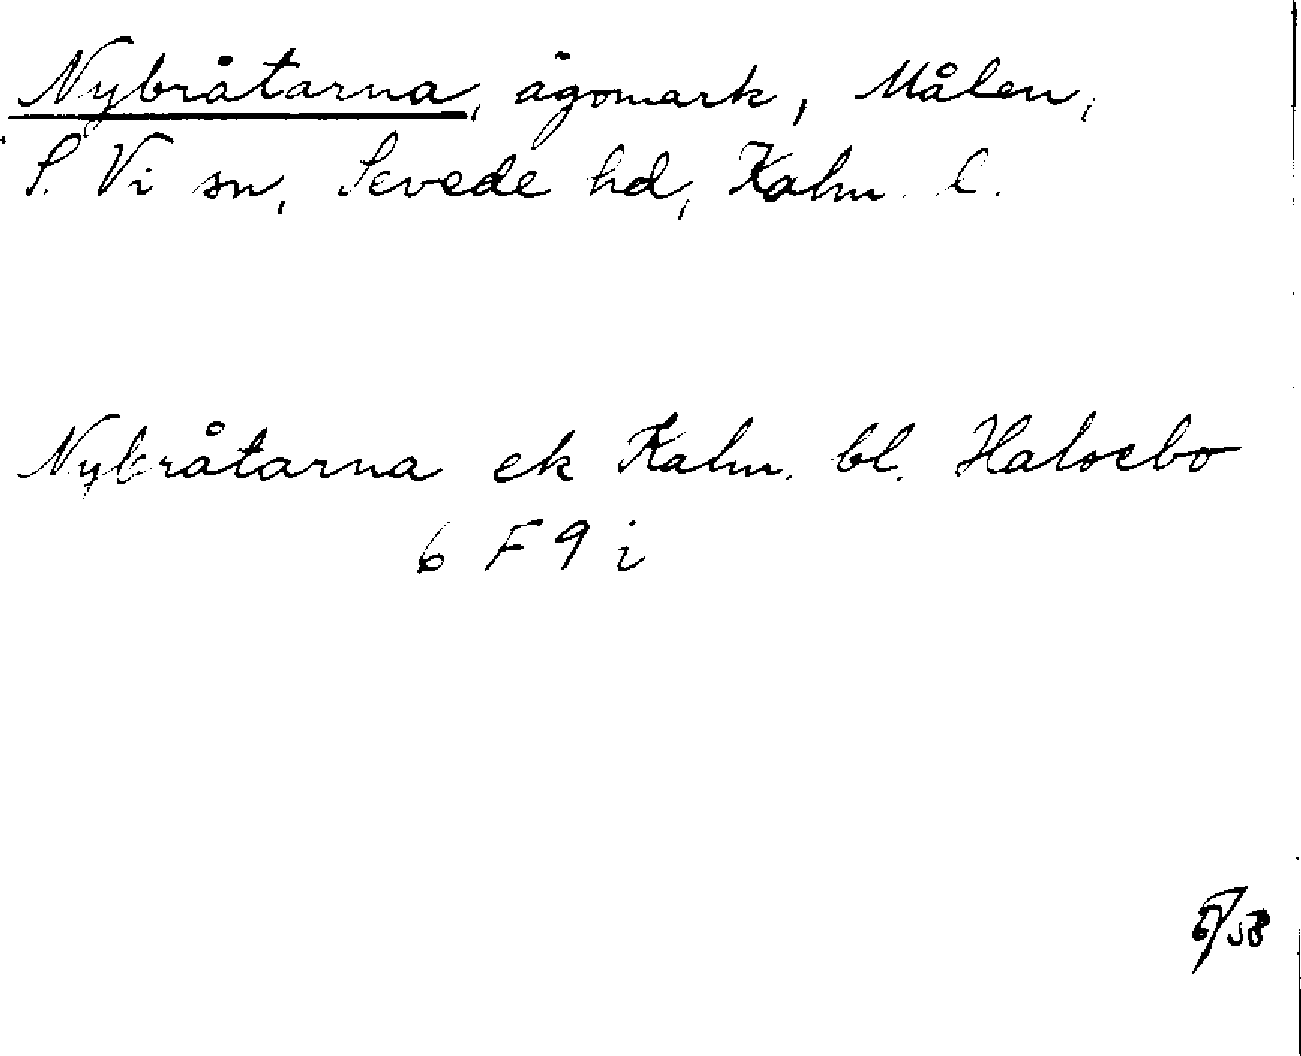 Nybråtarna, ägomark, Målen,
S. Vi sn, Sevede hd, Kalm. l.
Nybråtarna ek Kalm. bl. Halsebo
6 F 9 i